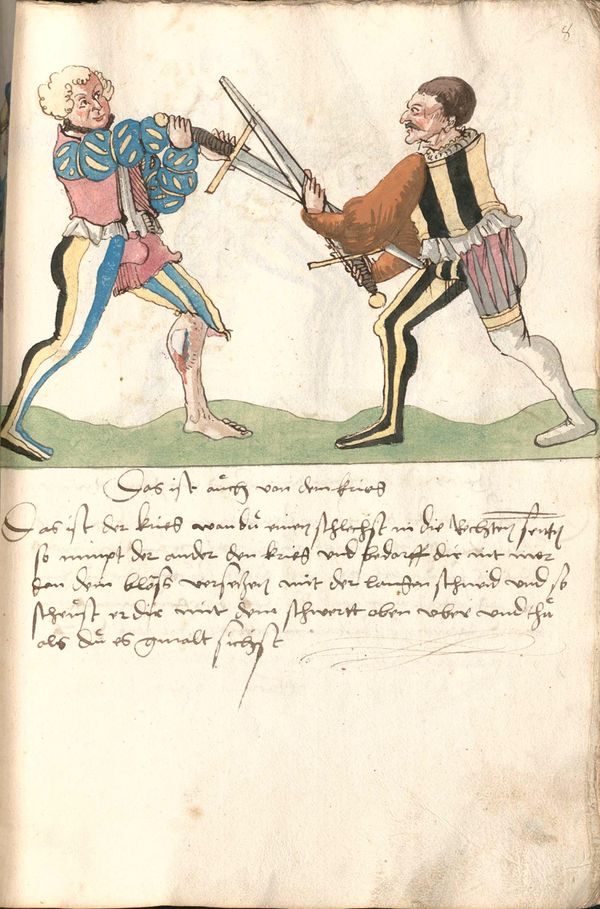 8
Das ist auch von dem kries
Das ist der kries wan dü einen schlechst in die Rechten seittn
so nimpt der ander den kries vnd bedarff die nit mer
dan dem blöss versetzen mit der langen schneid vnd so
scheüst er dir mit dem schwertt oben vber vnd thü
als dü es gmalt sichst